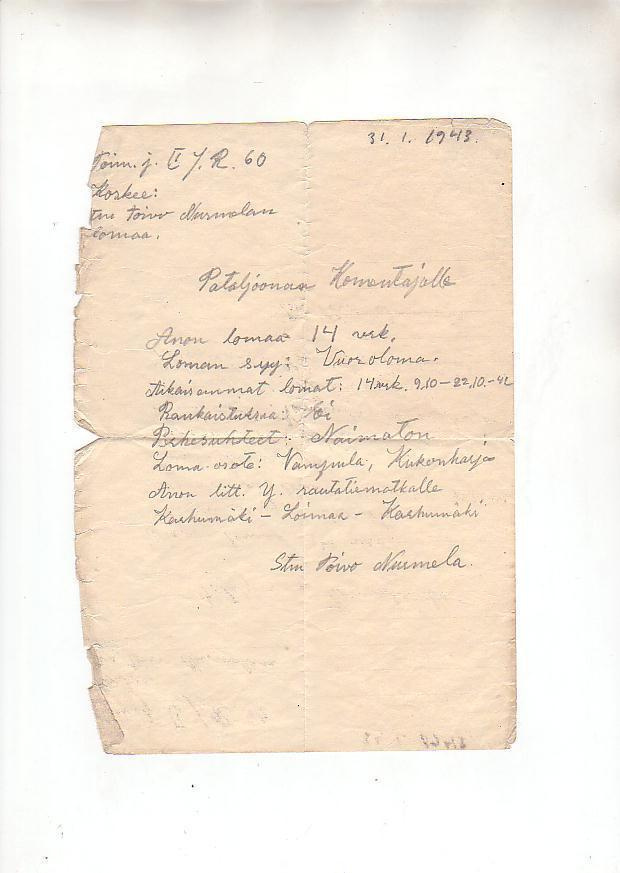 31. 1. 1943.
Toim. j. II/J.R. 60
Koskee:
stm Toivo Nurmelan
lomaa.
Pataljoonan Komentajalle
Anon lomaa 14 vrk.
Loman syy: Vuoroloma.
Aikaisemmat lomat: 14 vrk. 9.10–22.10.–42
Rankaistuksia: Ei
Perhesuhteet: Naimaton
Loma-osote: Vampula, Kukonharja
Anon litt. Y. rautatiematkalle
Karhumäki – Loimaa – Karhumäki
Stm Toivo Nurmela.